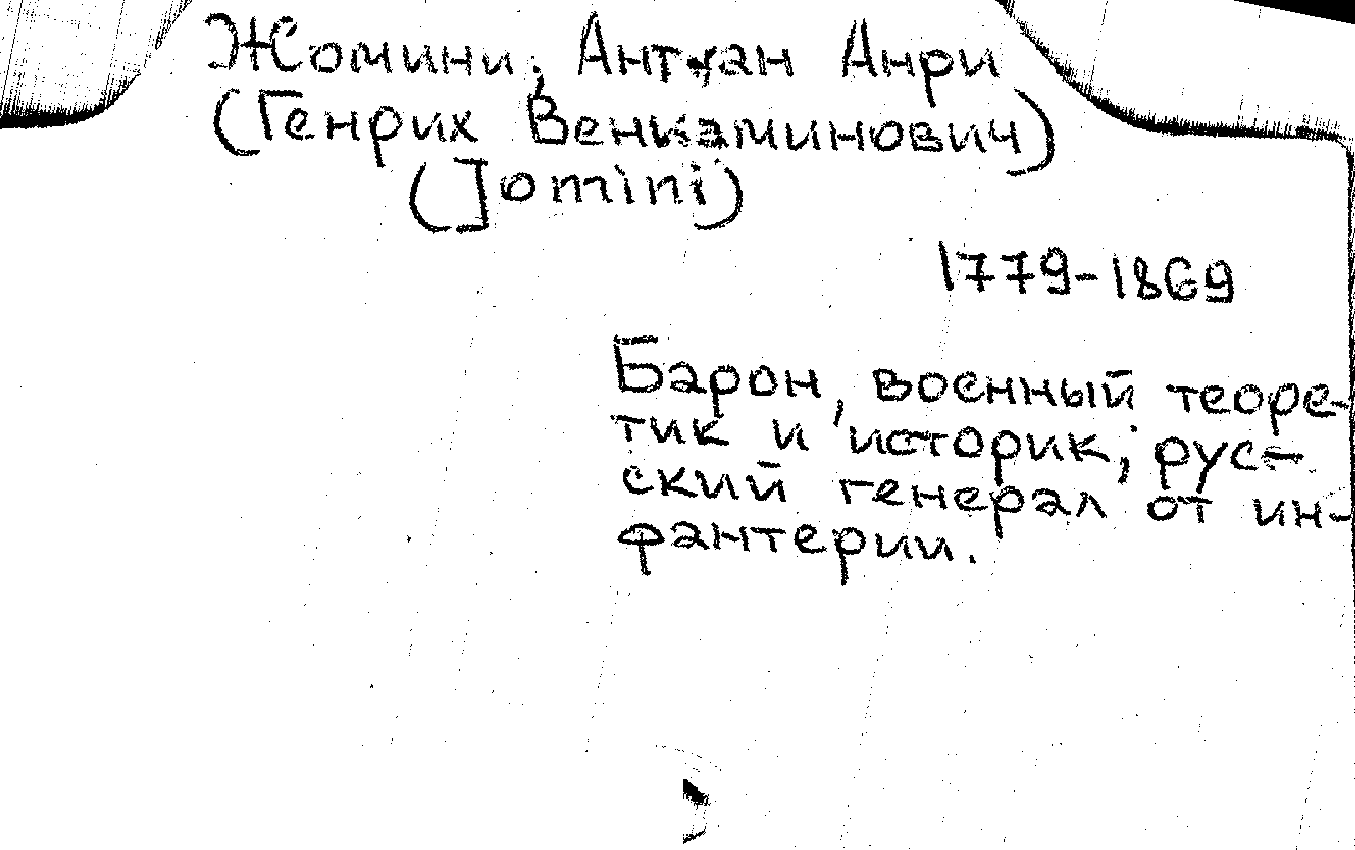 Жомини, Антуан Анри
(Генрих Вениаминович)
(Jomini)
1779-1869
Барон, военный теоре-
тик и историк; рус-
ский генерал от ин-
фантерии.